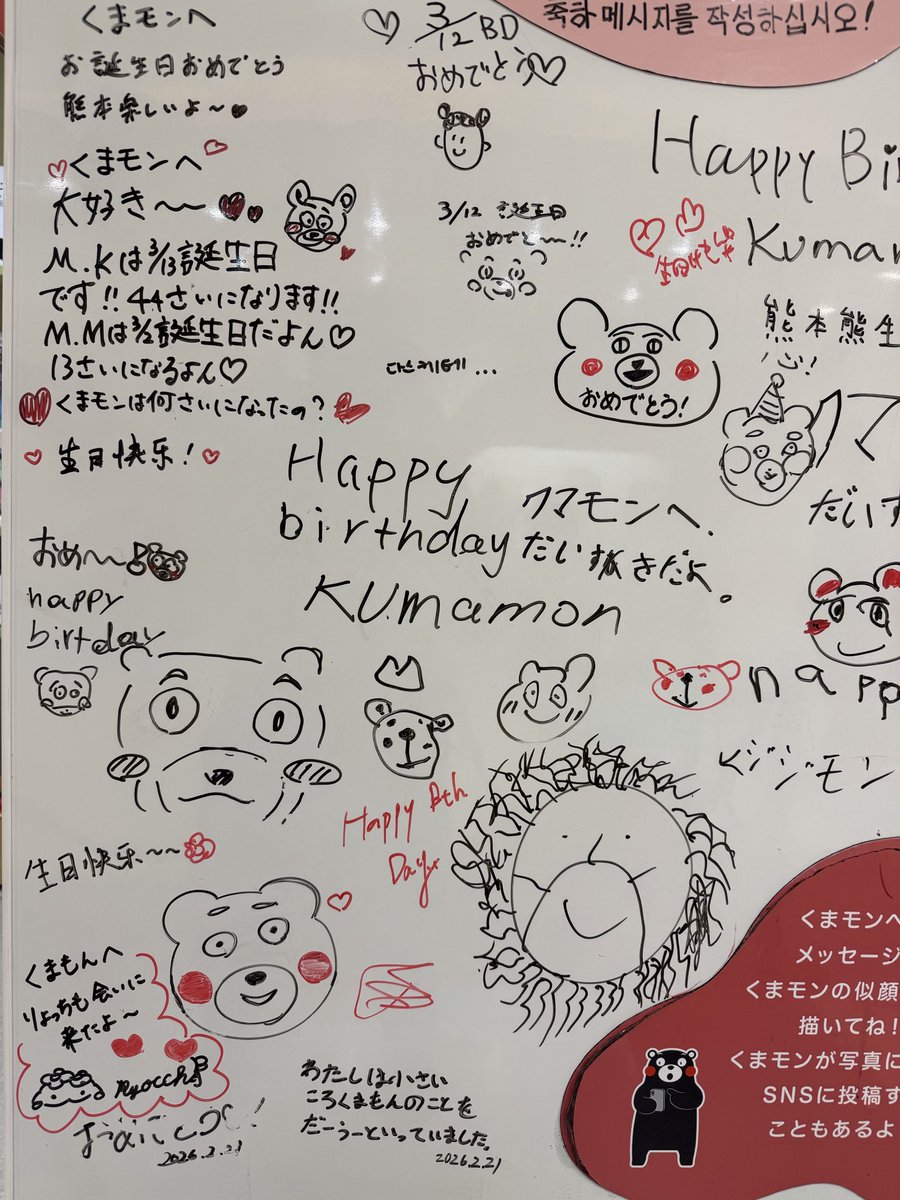 축하 메시지를 작성하십시오!
くまモンへ
お誕生日おめでとう
熊本楽しいよ〜
3/12 BD
おめでとう
Happy Bi
Kuma
くまモンへ
大好き〜〜
M.Kは3/13誕生日
です!!44さいになります!!
M.Mは3/2誕生日だよん♡
13さいになるよん♡
くまモンは何さいになったの?
生日快乐!
3/12 誕生日
おめでと〜!!
おめでとう!
熊本熊生
心!
Happy
birthday
KUMAmon
クマモンへ.
だいすきだよ。
だいす
おめ〜!
happy
birthday
happ
Happy Bth
Day
生日快乐~~
くまもんへ
りょっちも会いに
来たよ〜
Ryocchi
2026.2.21
わたしは小さい
ころくまもんのことを
だーうーといっていました。
2026.2.21
くまモンへ
メッセージ
くまモンの似顔
描いてね!
くまモンが写真に
SNSに投稿す
こともあるよ